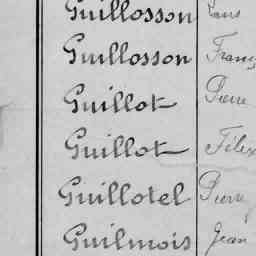 Guillosson
Guillosson
Guillot Pierre
Guillot Félix
Guillotel Pierre
Guilmois Jean